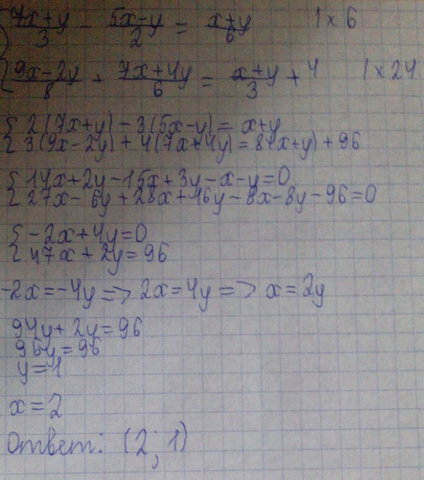 { (7x+y)/3 - (5x-y)/2 = (x+y)/6 | ×6
(9x-2y)/8 + (7x+4y)/6 = (x+y)/3 + 4 | ×24
{ 2(7x+y) - 3(5x-y) = x+y
3(9x-2y) + 4(7x+4y) = 8(x+y) + 96
{ 14x+2y-15x+3y-x-y=0
27x-6y+28x+16y-8x-8y-96=0
{ -2x+4y=0
47x+2y=96
-2x=-4y => 2x=4y => x=2y
94y+2y=96
96y=96
y=1
x=2
Ответ: (2; 1)